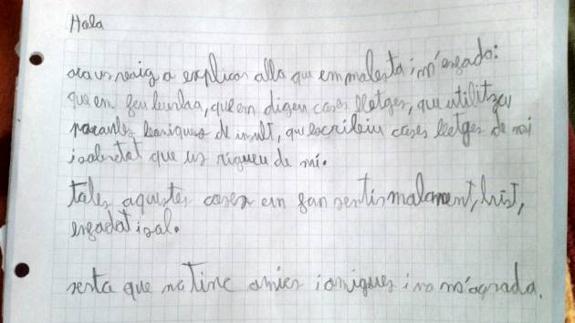 Hola
ara us vaig a explicar allo que em malesta i m'enfada:
que em feu burla, que em digeu coses lletges, que utilitzeu
paraules boniques de insult, que escribiu coses lletges de mi
i sobretot que us rigueu de mi.
totes aquestes coses em fan sentir malament, trist,
enfadat i sol.
senta que no tinc amics i amigues i no m'agrada.